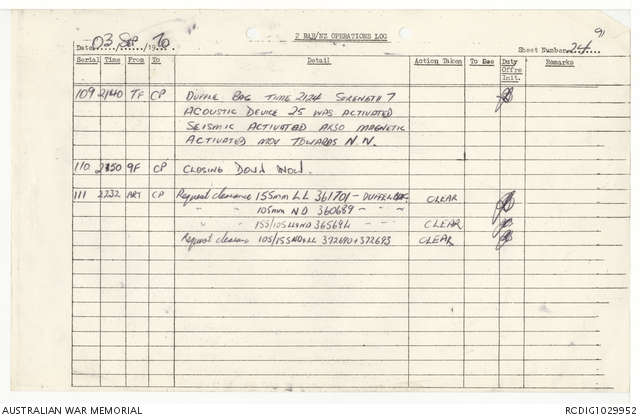 91
2 RAR/NZ OPERATIONS LOG
Date 03/Sep/1970 Sheet Number 24
Serial Time From To Detail Action Taken To Bde Duty Offrs Init. Remarks
109 2140 TF CP DUFFLE BAG TIME 2124 STRENGTH 7
ACOUSTIC DEVICE 25 WAS ACTIVATED
SEISMIC ACTIVATED ALSO MAGNETIC
ACTIVATED MOV TOWARDS N.W.
110 2150 9F CP CLOSING DOWN NOW.
111 2232 ART CP Request clearance 155mm LL 361701 - DUFFEL CLEAR
" " 105mm ND 360689 - " - "
" " 155/105 ND 365694 CLEAR
Request clearance 105/155 ND+LL 372690 + 372693 CLEAR
AUSTRALIAN WAR MEMORIAL RCDIG1029952